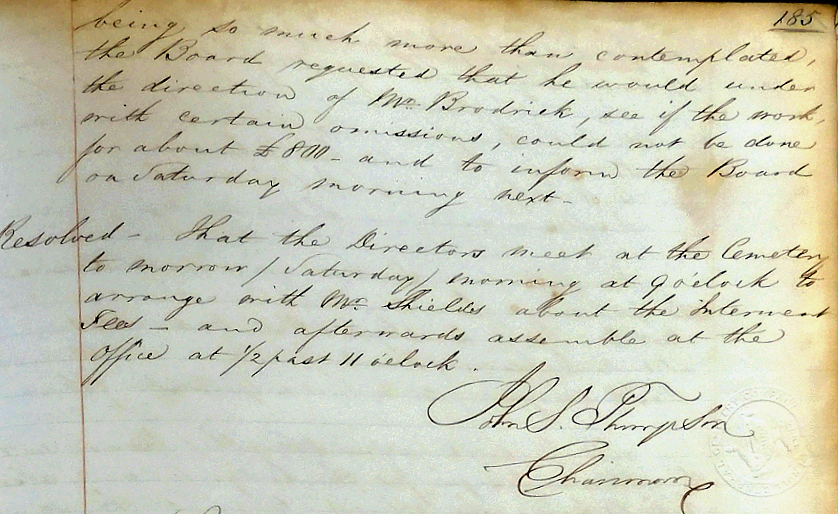 185
being so much more than contemplated,
the Board requested that he would under
the direction of Mr. Brodrick, see if the work,
with certain omissions, could not be done
for about £800 - and to inform the Board
on Saturday morning next -
Resolved - That the Directors meet at the Cemetery
to morrow / Saturday / morning at 9 o'clock to
arrange with Mr. Shields about the Interment
Fees - and afterwards assemble at the
Office at 1/2 past 11 o'clock.
John S. Thompson
Chairman